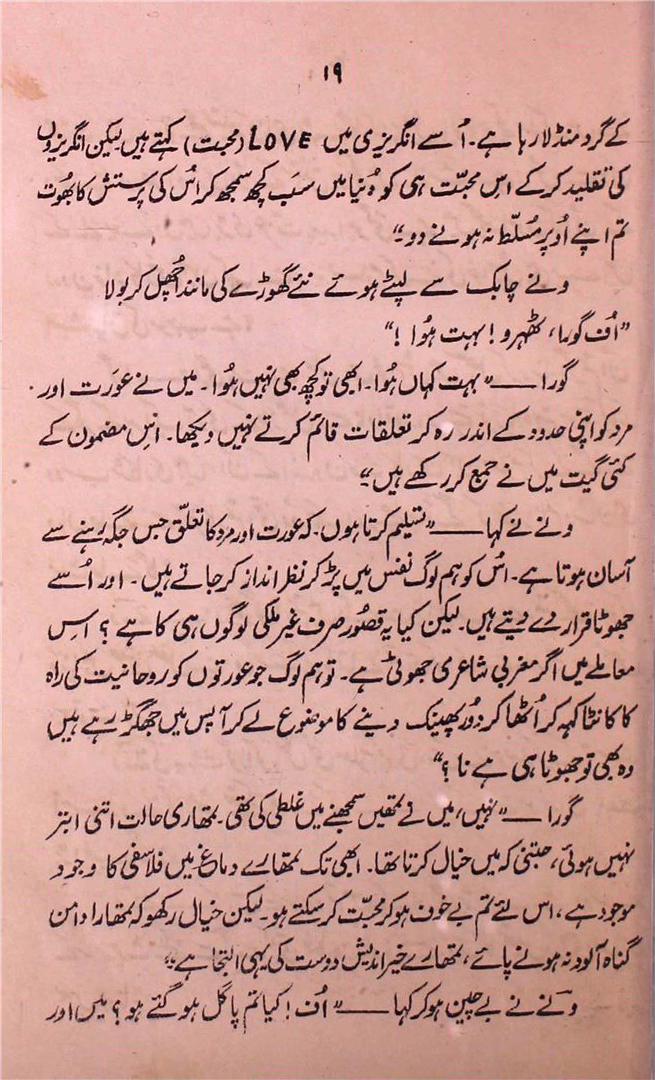 ۱۹
کے گرد منڈلا رہا ہے۔ اُسے انگریزی میں LOVE (محبت) کہتے ہیں لیکن انگریزوں
کی تقلید کر کے اس محبّت ہی کو دُنیا میں سب کچھ سمجھ کر اُس کی پرستش کا بھُوت
تم اپنے اُوپر مُسلّط نہ ہونے دو۔“
ونے چابک سے پٹے ہوئے نئے گھوڑے کی مانند اُچھل کر بولا
”اُف گورا، ٹھہرو! بہت ہُوا!“
گورا —— ”بہت کہاں ہُوا۔ ابھی تو کچھ بھی نہیں ہُوا۔ میں نے عورت اور
مرد کو اپنی حدود کے اندر رہ کر تعلقات قائم کرتے نہیں دیکھا۔ اس مضمون کے
کئی گیت میں نے جمع کر رکھے ہیں“
ونے نے کہا —— ”تسلیم کرتا ہوں۔ کہ عورت اور مرد کا تعلّق جس جگہ رہنے سے
آسان ہوتا ہے۔ اُس کو ہم لوگ نفس میں پڑ کر نظر انداز کر جاتے ہیں۔ اور اُسے
جھوٹا قرار دے دیتے ہیں۔ لیکن کیا یہ قصُور صرف غیر ملکی لوگوں ہی کا ہے؟ اس
معاملے میں اگر مغربی شاعری جھوٹی ہے۔ تو ہم لوگ جو عورتوں کو روحانیت کی راہ
کا کانٹا کہہ کر اُٹھا کر دُور پھینک دینے کا موضوع لے کر آپس میں جھگڑ رہے ہیں
وہ بھی تو جھوٹا ہی ہے نا؟“
گورا —— ”نہیں، میں نے تمھیں سمجھنے میں غلطی کی تھی۔ تمھاری حالت اتنی ابتر
نہیں ہوئی، جتنی کہ میں خیال کرتا تھا۔ ابھی تک تمھارے دماغ میں فلاسفی کا وجود
موجود ہے، اس لئے تم بے خوف ہو کر محبّت کر سکتے ہو۔ لیکن خیال رکھو کہ تمھارا دامن
گناہ آلود نہ ہونے پائے، تمھارے خیر اندیش دوست کی یہی التجا ہے“
ونے نے بے چین ہو کر کہا —— ”اُف! کیا تم پاگل ہو گئے ہو؟ میں اور